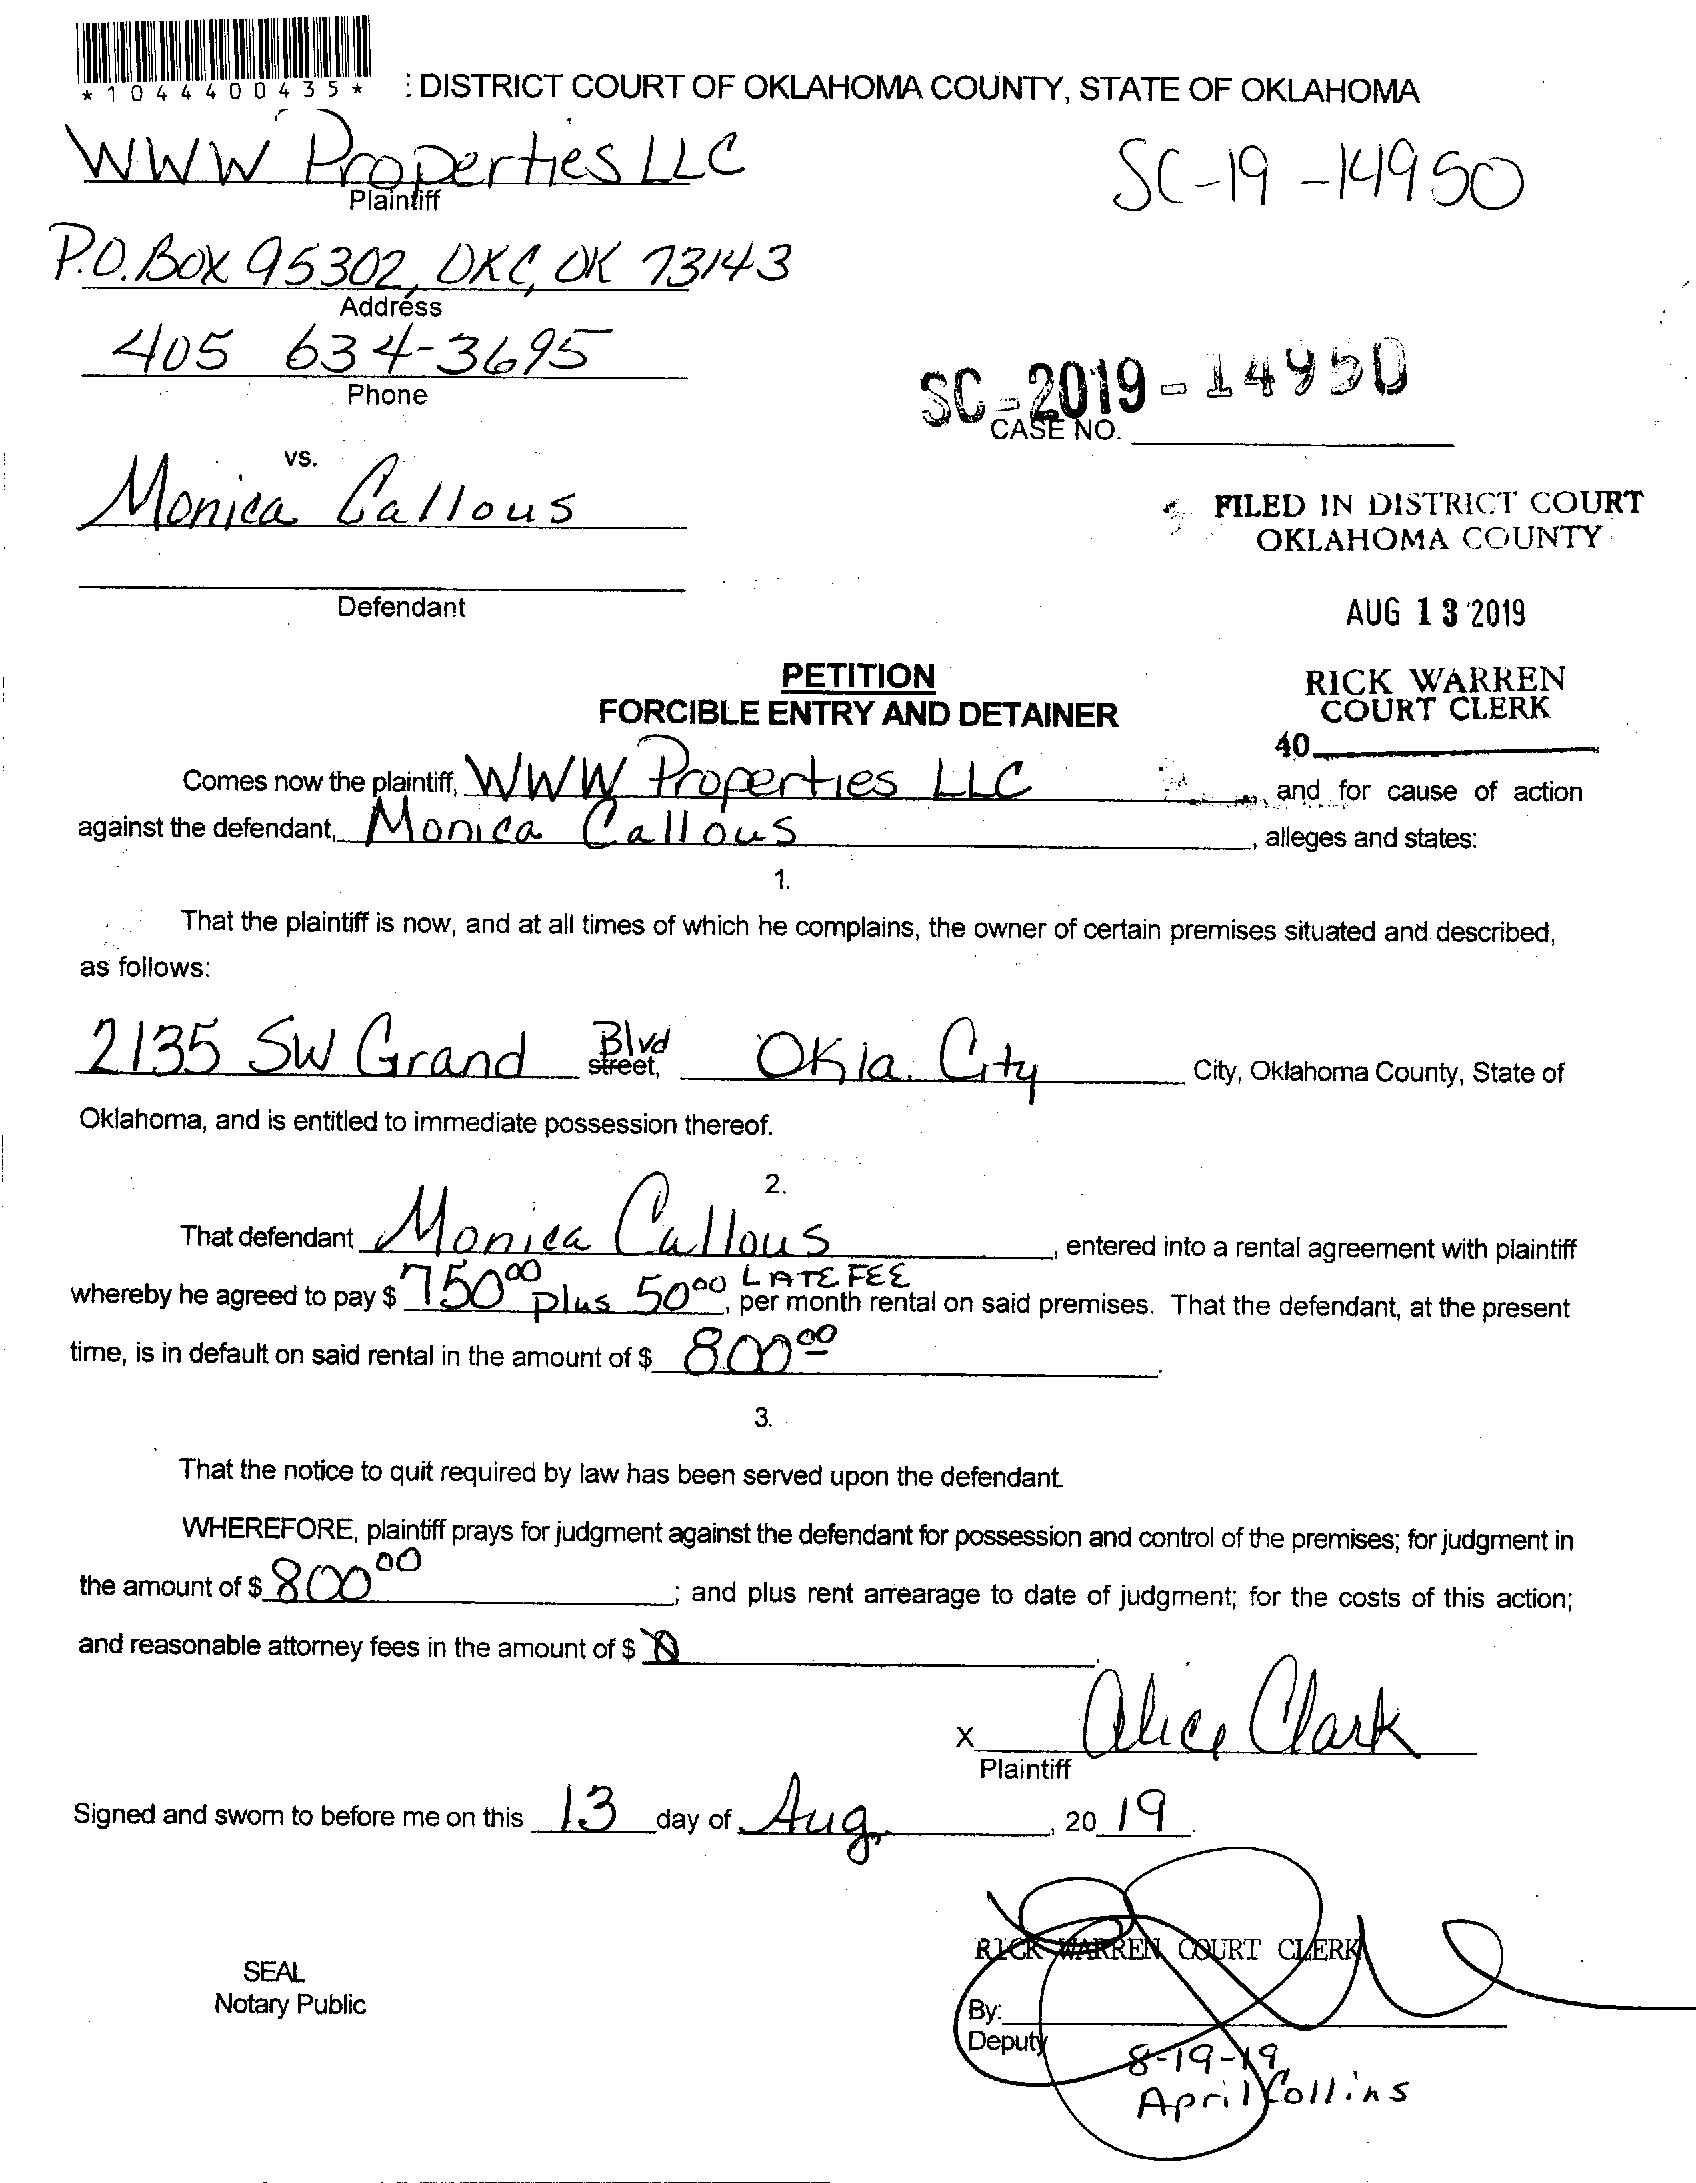 *1044400435*
: DISTRICT COURT OF OKLAHOMA COUNTY, STATE OF OKLAHOMA
WWW Properties LLC
Plaintiff
SC-19-14950
P.O. Box 95302, OKC, OK 73143
Address
405 634-3695
Phone
SC-2019-14950
CASE NO.
vs.
Monica Callous
FILED IN DISTRICT COURT
OKLAHOMA COUNTY
Defendant
AUG 13 2019
PETITION
FORCIBLE ENTRY AND DETAINER
RICK WARREN
COURT CLERK
40
Comes now the plaintiff, WWW Properties LLC, and for cause of action
against the defendant, Monica Callous, alleges and states:
1.
That the plaintiff is now, and at all times of which he complains, the owner of certain premises situated and described,
as follows:
2135 SW Grand Blvd street, Okla. City City, Oklahoma County, State of
Oklahoma, and is entitled to immediate possession thereof.
2.
That defendant Monica Callous, entered into a rental agreement with plaintiff
whereby he agreed to pay $ 750 00 plus 50 00 LATE FEE, per month rental on said premises. That the defendant, at the present
time, is in default on said rental in the amount of $ 800 00.
3.
That the notice to quit required by law has been served upon the defendant.
WHEREFORE, plaintiff prays for judgment against the defendant for possession and control of the premises; for judgment in
the amount of $ 800 00; and plus rent arrearage to date of judgment; for the costs of this action;
and reasonable attorney fees in the amount of $
x Alice Clark
Plaintiff
Signed and sworn to before me on this 13 day of Aug, 20 19.
RICK WARREN COURT CLERK
SEAL
Notary Public
By:
Deputy
8-19-19
April Collins